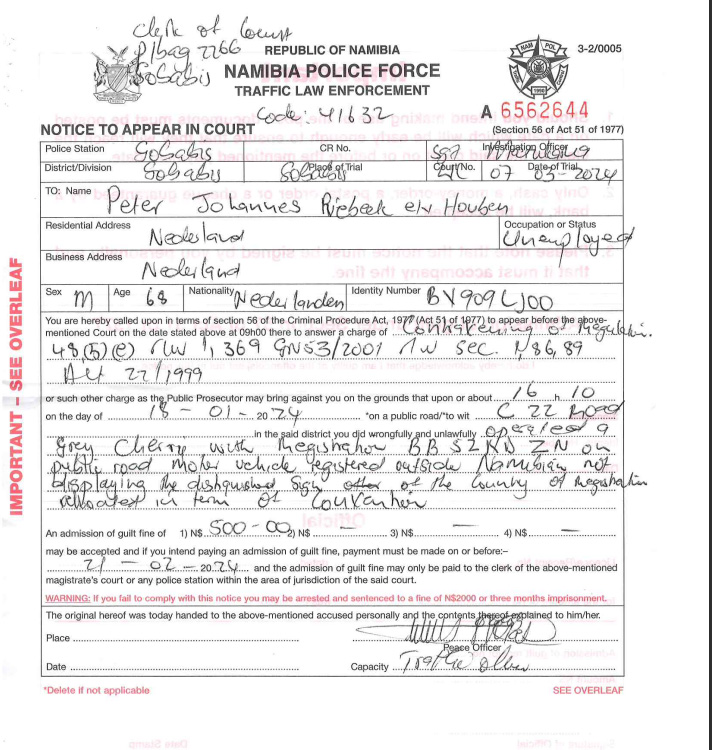 Clerk of Court
P/bag 2266
Gobabis
REPUBLIC OF NAMIBIA
NAMIBIA POLICE FORCE
TRAFFIC LAW ENFORCEMENT
3-2/0005
NAM POL
1990
Code: 41132
A 6562644
NOTICE TO APPEAR IN COURT
(Section 56 of Act 51 of 1977)
Police Station Gobabis CR No. Investigation Officer Sgt
District/Division Gobabis Place of Trial Gobabis Court No. C Date of Trial 07 03-2024
TO: Name Peter Johannes Riebeek e/v Houben
Residential Address Nederland
Occupation or Status Unemployed
Business Address Nederland
Sex M Age 68 Nationality Nederlanden Identity Number BV909LJ00
You are hereby called upon in terms of section 56 of the Criminal Procedure Act, 1977 (Act 51 of 1977) to appear before the above-
mentioned Court on the date stated above at 09h00 there to answer a charge of Contravening of Regulation.
48(b)(e) r/w 1, 369 GN53/2001 r/w sec. 1, 86, 89
Act 22/1999
or such other charge as the Public Prosecutor may bring against you on the grounds that upon or about 16 h 10
on the day of 18 - 01 - 2024 *on a public road/*to wit C 22 Road
in the said district you did wrongfully and unlawfully operated a
Grey Cherry with Registration BB52KD ZN on
public road motor vehicle registered outside Namibia not
displaying the distinguished sign of the Country of Registration
allocated in term of Convention
An admission of guilt fine of 1) N$ 500-00 2) N$ — 3) N$ — 4) N$ —
may be accepted and if you intend paying an admission of guilt fine, payment must be made on or before:–
21 - 02 - 2024 and the admission of guilt fine may only be paid to the clerk of the above-mentioned
magistrate's court or any police station within the area of jurisdiction of the said court.
WARNING: If you fail to comply with this notice you may be arrested and sentenced to a fine of N$2000 or three months imprisonment.
The original hereof was today handed to the above-mentioned accused personally and the contents thereof explained to him/her.
Place
Peace Officer
Date Capacity Traffic Officer
*Delete if not applicable
SEE OVERLEAF
IMPORTANT – SEE OVERLEAF